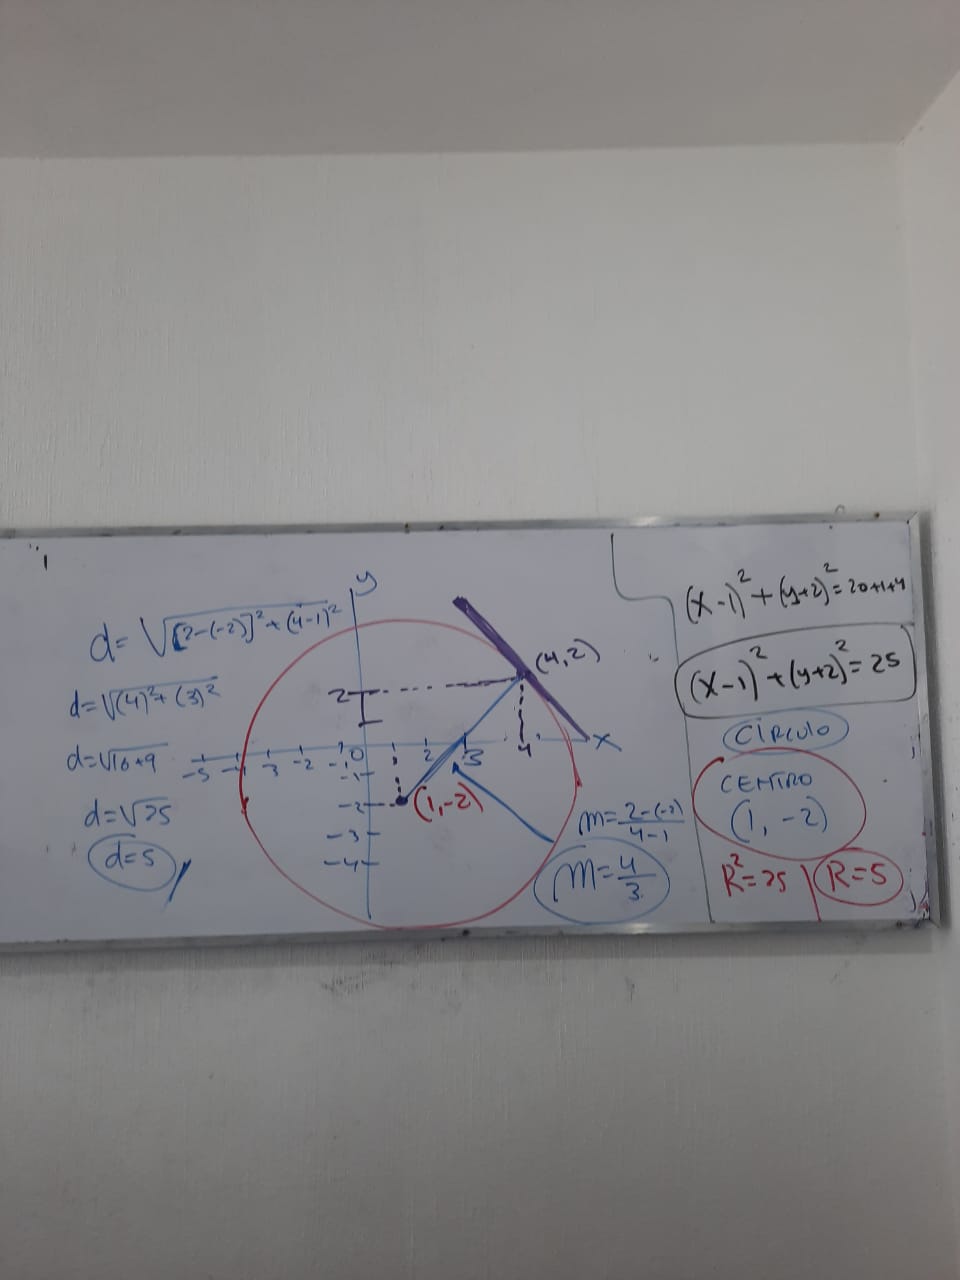 d=√[2-(-2)]²+(4-1)²
d=√(4)²+(3)²
d=√16+9
d=√25
d=5
y
(4,2)
2
-5 -4 3 -2 -1 0 2 3 4 x
-1
-2
(1,-2)
-3
-4
m=2-(-2)/4-1
m=4/3
(x-1)²+(y+2)²=20+1+4
(x-1)²+(y+2)²=25
CÍRCULO
CENTRO
(1,-2)
R²=25 R=5